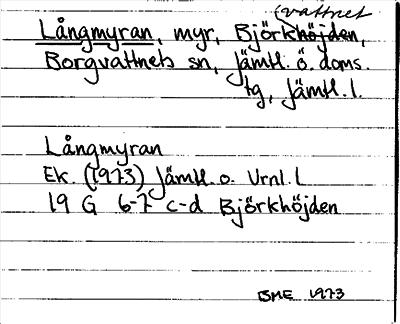 (vattnet
Långmyran, myr, Björkhöjden,
Borgvattnets sn, Jämtl. ö. doms.
tg, Jämtl. l.
Långmyran
Ek. (1973) Jämtl. o. Vrnl. l
19 G 6-7 c-d Björkhöjden
BME 1973